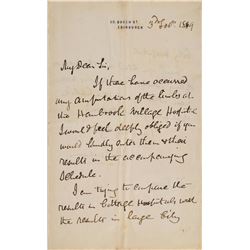 52, QUEEN ST.
EDINBURGH
3rd Feb 1869
My Dear Sir,
If there have occurred
any amputations of the limbs at
the Hambrook Village Hospital
I would feel deeply obliged if you
would kindly enter them & their
results in the accompanying
Schedule.
I am trying to compare the
results in Cottage Hospitals with
the results in large City